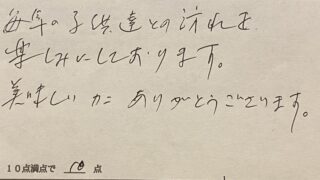 毎年の子供達との訪れを
楽しみにしております。
美味しいカニありがとうございます。
10点満点で 10 点